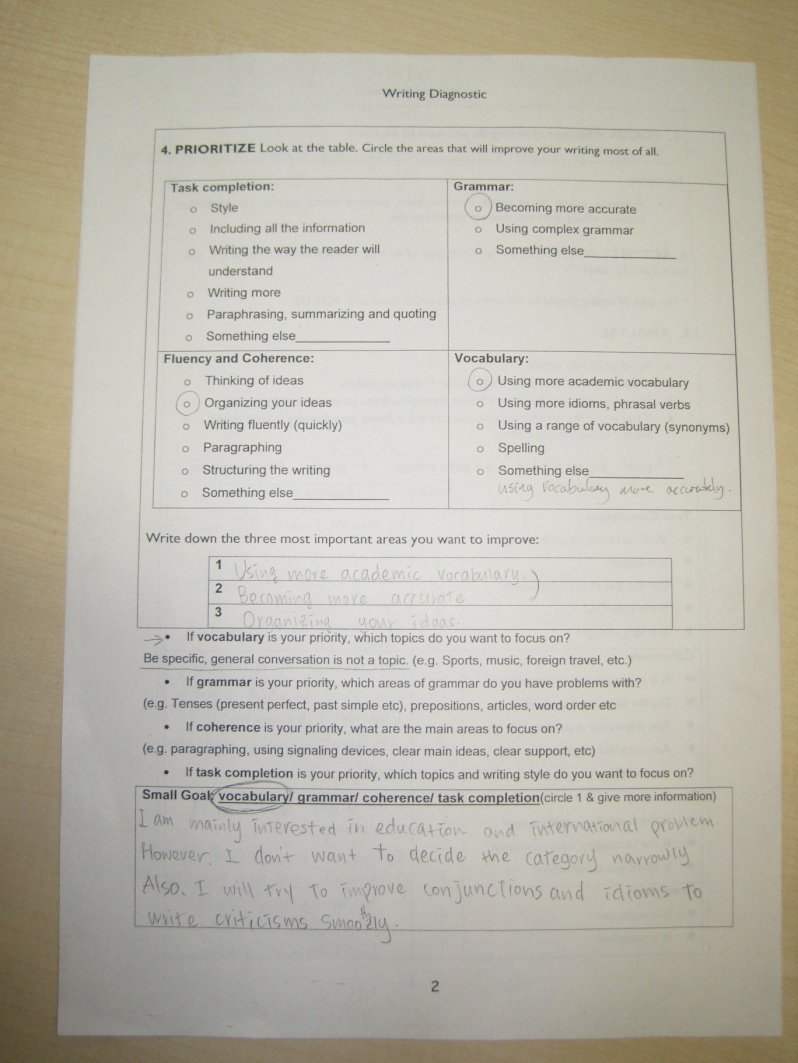 Writing Diagnostic
4. PRIORITIZE Look at the table. Circle the areas that will improve your writing most of all.
Task completion:
o Style
o Including all the information
o Writing the way the reader will
understand
o Writing more
o Paraphrasing, summarizing and quoting
o Something else______________
Grammar:
o Becoming more accurate
o Using complex grammar
o Something else______________
Fluency and Coherence:
o Thinking of ideas
o Organizing your ideas
o Writing fluently (quickly)
o Paragraphing
o Structuring the writing
o Something else______________
Vocabulary:
o Using more academic vocabulary
o Using more idioms, phrasal verbs
o Using a range of vocabulary (synonyms)
o Spelling
o Something else______________
using vocabulary more accurately.
Write down the three most important areas you want to improve:
1 Using more academic vocabulary.
2 Becoming more accurate
3 Organizing your ideas.
• If vocabulary is your priority, which topics do you want to focus on?
Be specific, general conversation is not a topic. (e.g. Sports, music, foreign travel, etc.)
• If grammar is your priority, which areas of grammar do you have problems with?
(e.g. Tenses (present perfect, past simple etc), prepositions, articles, word order etc
• If coherence is your priority, what are the main areas to focus on?
(e.g. paragraphing, using signaling devices, clear main ideas, clear support, etc)
• If task completion is your priority, which topics and writing style do you want to focus on?
Small Goal: vocabulary/ grammar/ coherence/ task completion(circle 1 & give more information)
I am mainly interested in education and international problem
However, I don't want to decide the category narrowly
Also, I will try to improve conjunctions and idioms to
write criticisms
2